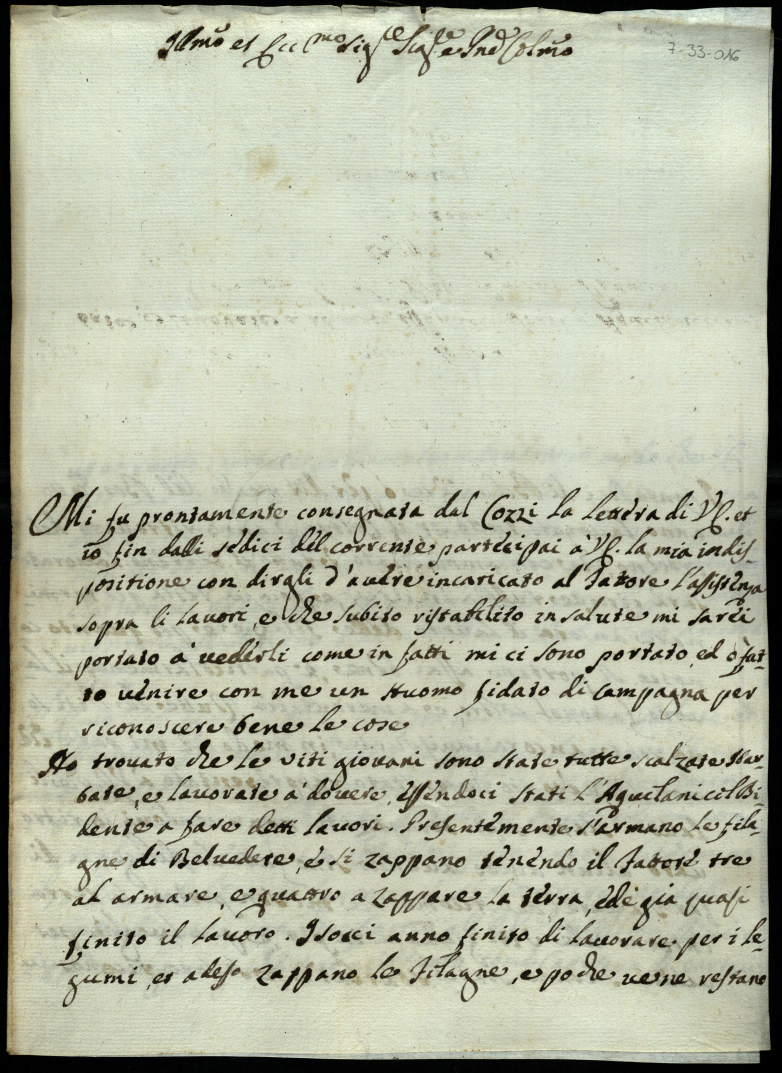 Illmo et Eccmo Sigre Sigre e Pne Colmo
7-33-016
Mi fu prontamente consegnata dal Cozzi la lettera di VE. et
io fin dalli sedici del corrente partecipai à VE. la mia indis-
positione con dirgli d'avere incaricato al Fattore l'assistenza
sopra li lavori, e che subito ristabilito in salute mi sarei
portato à vederli come in fatti mi ci sono portato, ed ò fat-
to venire con me un Huomo fidato di campagna per
riconoscere bene le cose
Ho trovato che le viti giovani sono state tutte scalzate
bate, e lavorate à dovere, essendoci stati l'Aquilani col Bi-
dente a fare detti lavori. Presentemente s'armano le fila-
gne di Belvedere, e si zappano tenendo il Fattore tre
al armare, e quattro a zappare la terra, ed è già quasi
finito il lavoro. I Socci anno finito di lavorare per i le-
gumi, et adeso zappano le filagne, e poche ve ne restano